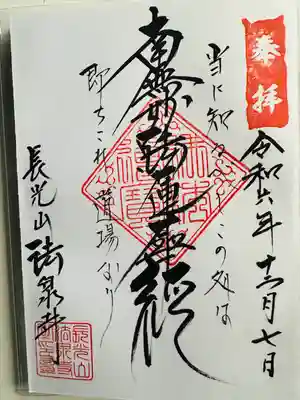 奉拝
令和六年十二月七日
当に知るべしこの処は
南無妙法蓮華経
即ちこれ道場なり
長光山